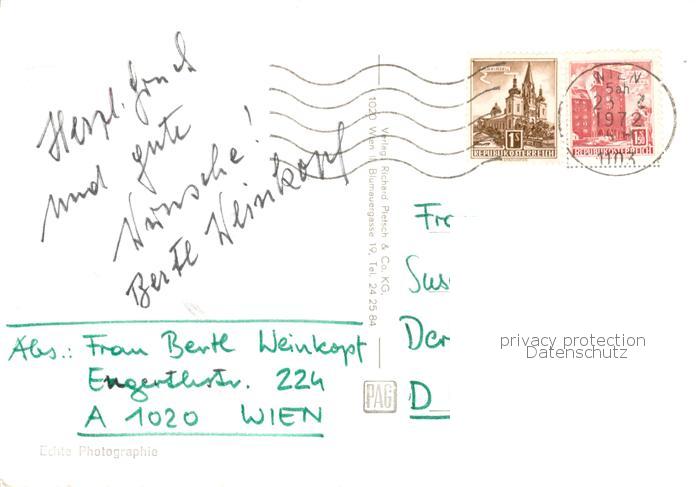 Herzl. Gruß
und gute
Wünsche!
Bertl Weinkopf
Abs.: Frau Bertl Weinkopf
Engerthstr. 224
A 1020 WIEN
Echte Photographie
Verlag Richard Pietsch & Co. KG.
1020 Wien II, Blumauergasse 19, Tel. 24 25 84
PAG
1S
REPUBLIK ÖSTERREICH
1.50
REPUBLIK ÖSTERREICH
WIEN
1972
1103
Fr
Sus
Der
D
privacy protection
Datenschutz